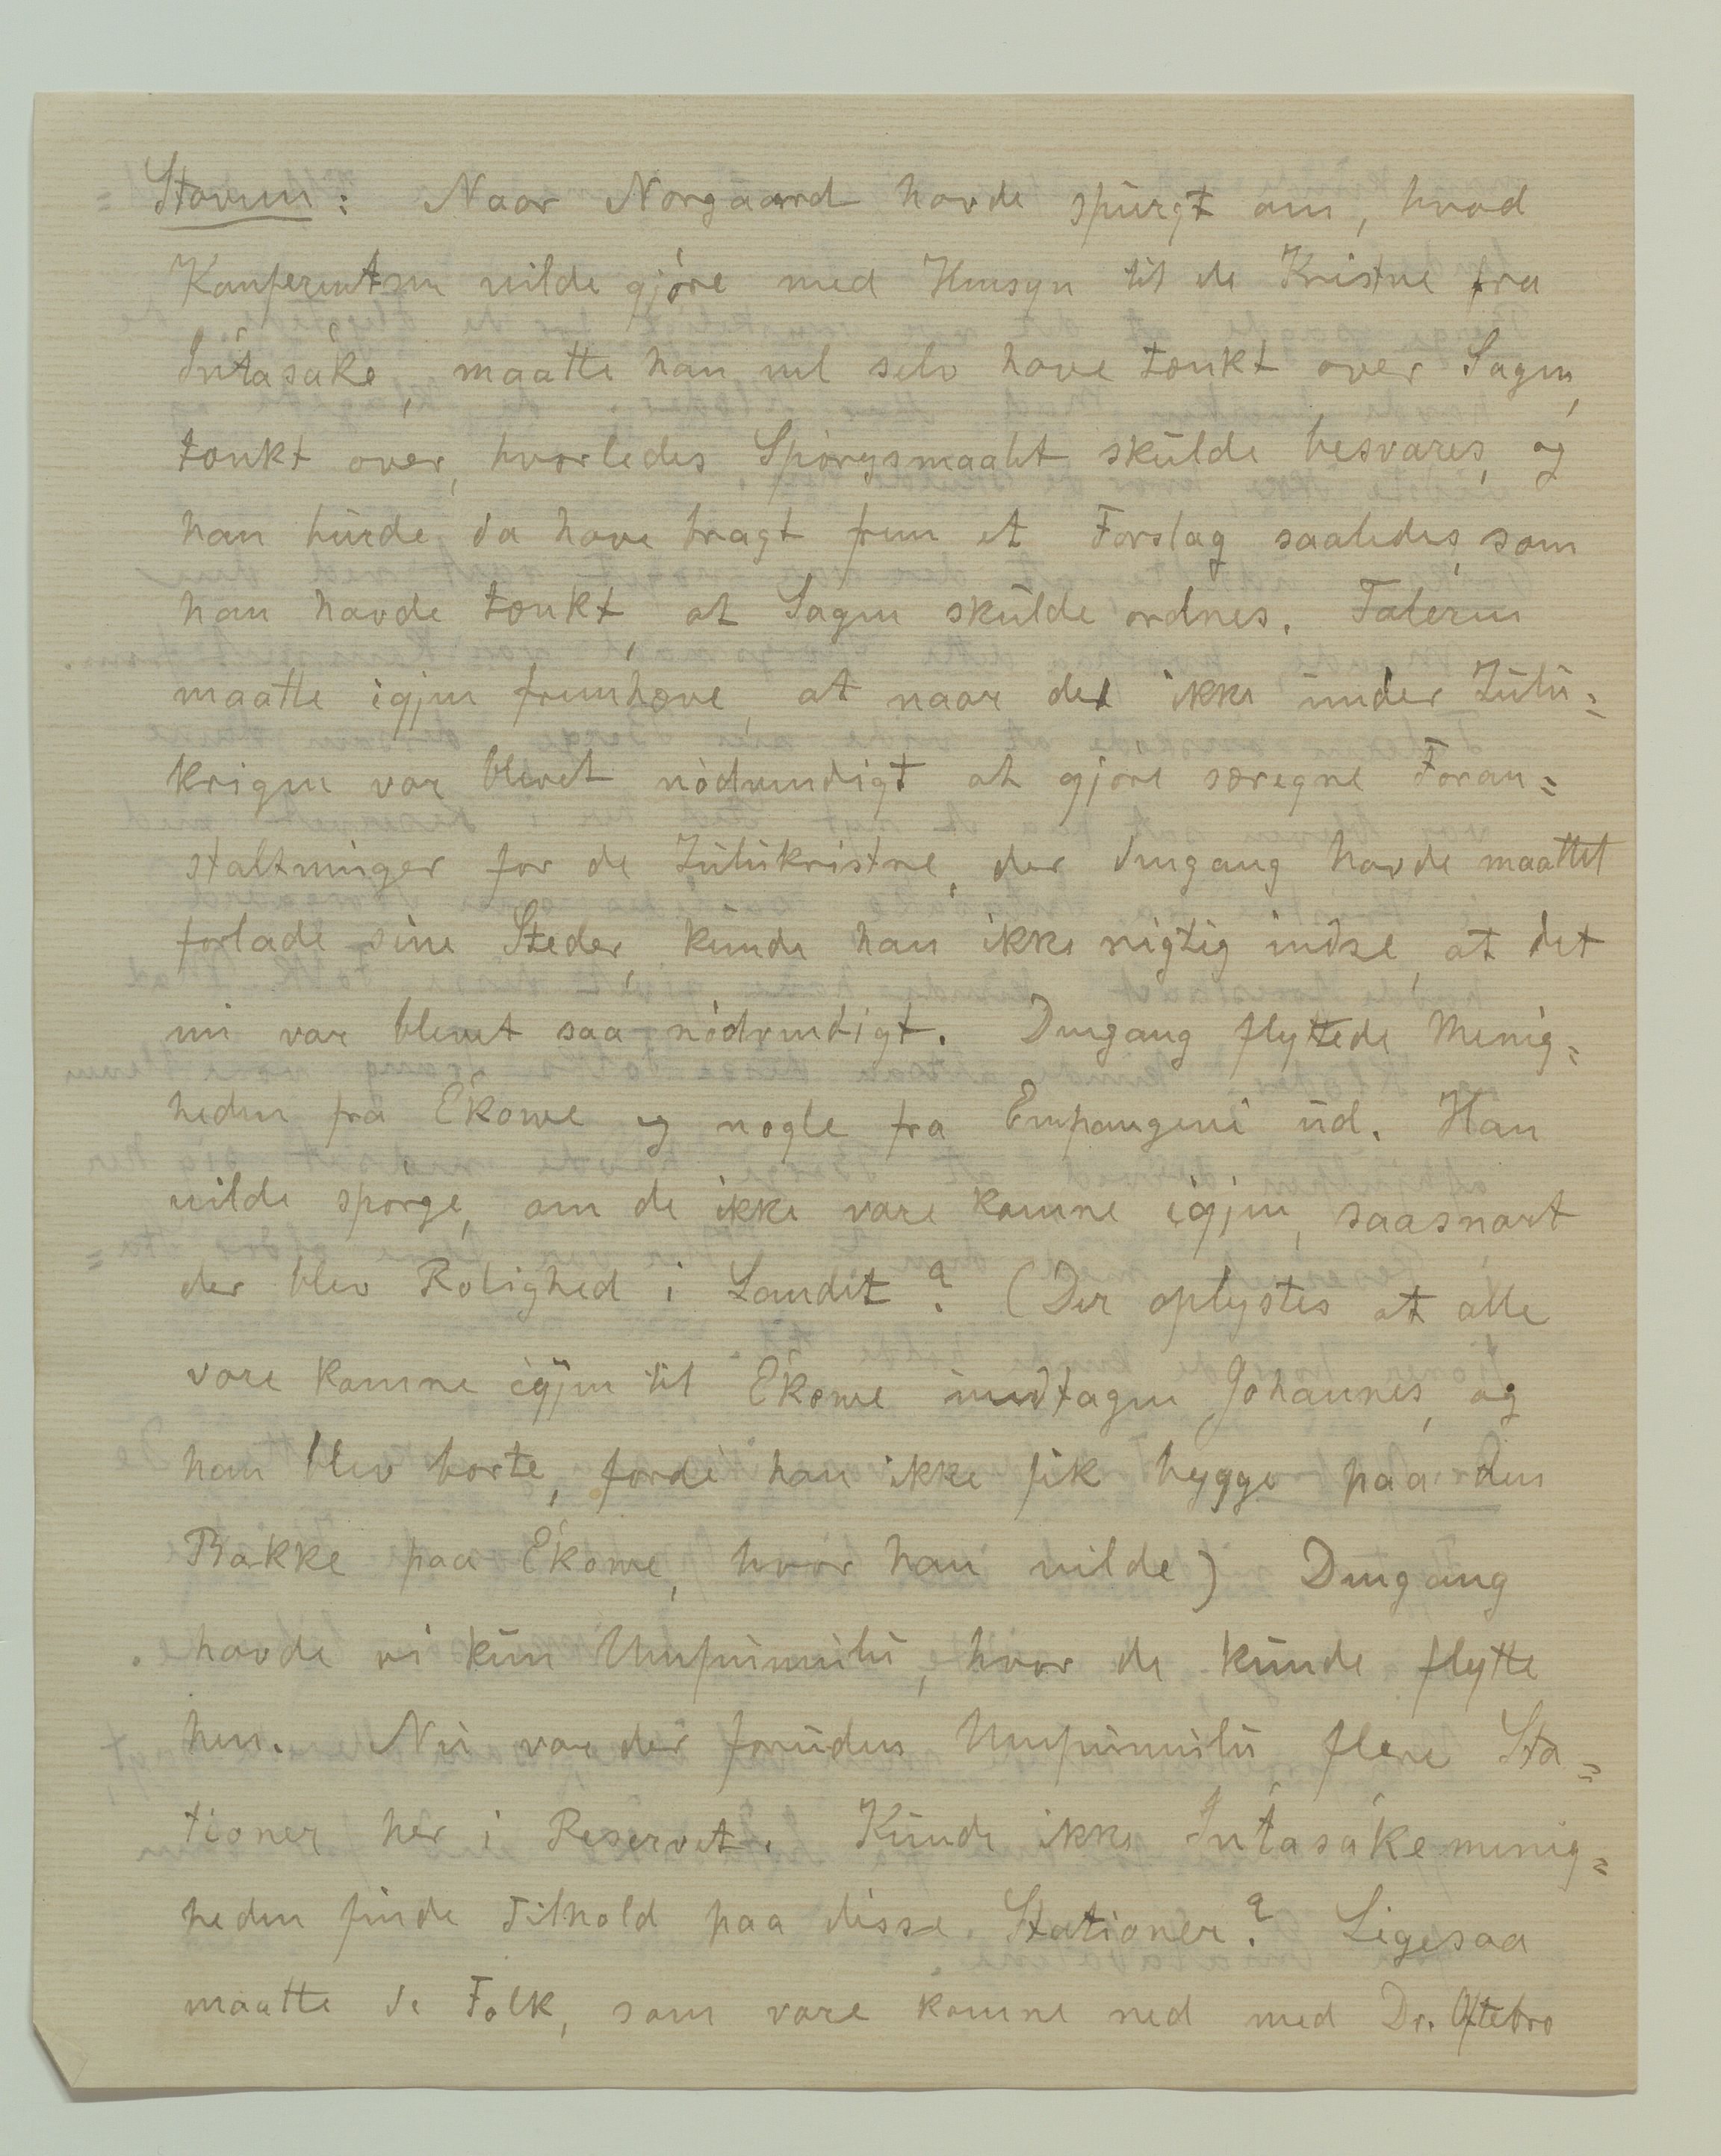 Stavem: Naar Norgaard havde spurgt om, hvad
Konferentsen vilde gjöre med Hensyn til de Kristne fra
Intasake, maatte han vel selv have tænkt over Sagen,
tænkt over, hvorledes Spörgsmaalet skulde besvares, og
han burde da have bragt frem et Forslag saaledes, som
han havde tænkt, at Sagen skulde ordnes. Taleren
maatte igjen fremhæve, at naar det ikke under Zulu=
krigen var blevet nödvendigt at gjöre særegne Foran=
staltninger for de Zulukristne, der dengang havde maattet
forlade sine Steder, kunde han ikke rigtig indse, at det
nu var blevet saa nödvendigt. Dengang flyttede Menig=
heden fra Ekowe og nogle fra Empangeni ud. Han
vilde spörge, om de ikke vare komne igjen, saasnart
der blev Rolighed i Landet? (Der oplystes at alle
vare komne igjen til Ekowe undtagen Johannes, og
han blev borte, fordi han ikke fik bygge paa den
Bakke paa Ekowe, hvor han vilde) Dengang
havde vi kun Umpumulu, hvor de kunde flytte
hen. Nu var der foruden Umpumulu, flere Sta=
tioner her i Reservet. Kunde ikke Intasakemenig=
heden finde Tilhold paa disse Stationer? Ligesaa
maatte de Folk, som vare komne ned med Dr. Oftebro